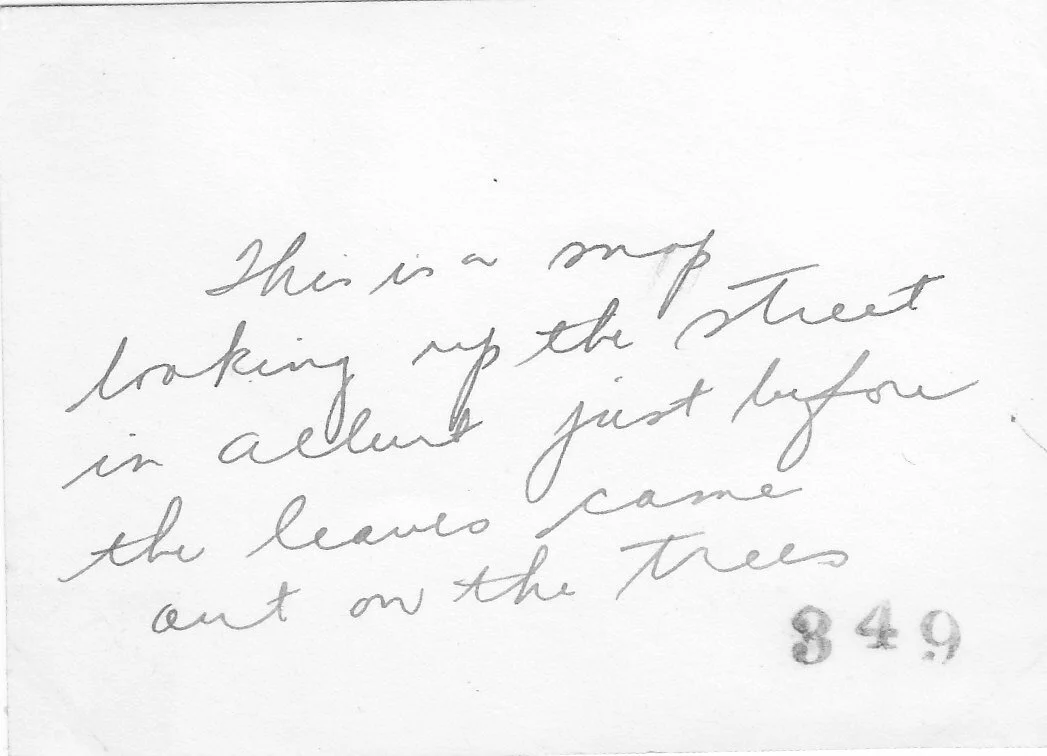 This is a snap
looking up the street
in just before
the leaves came
out on the trees
349